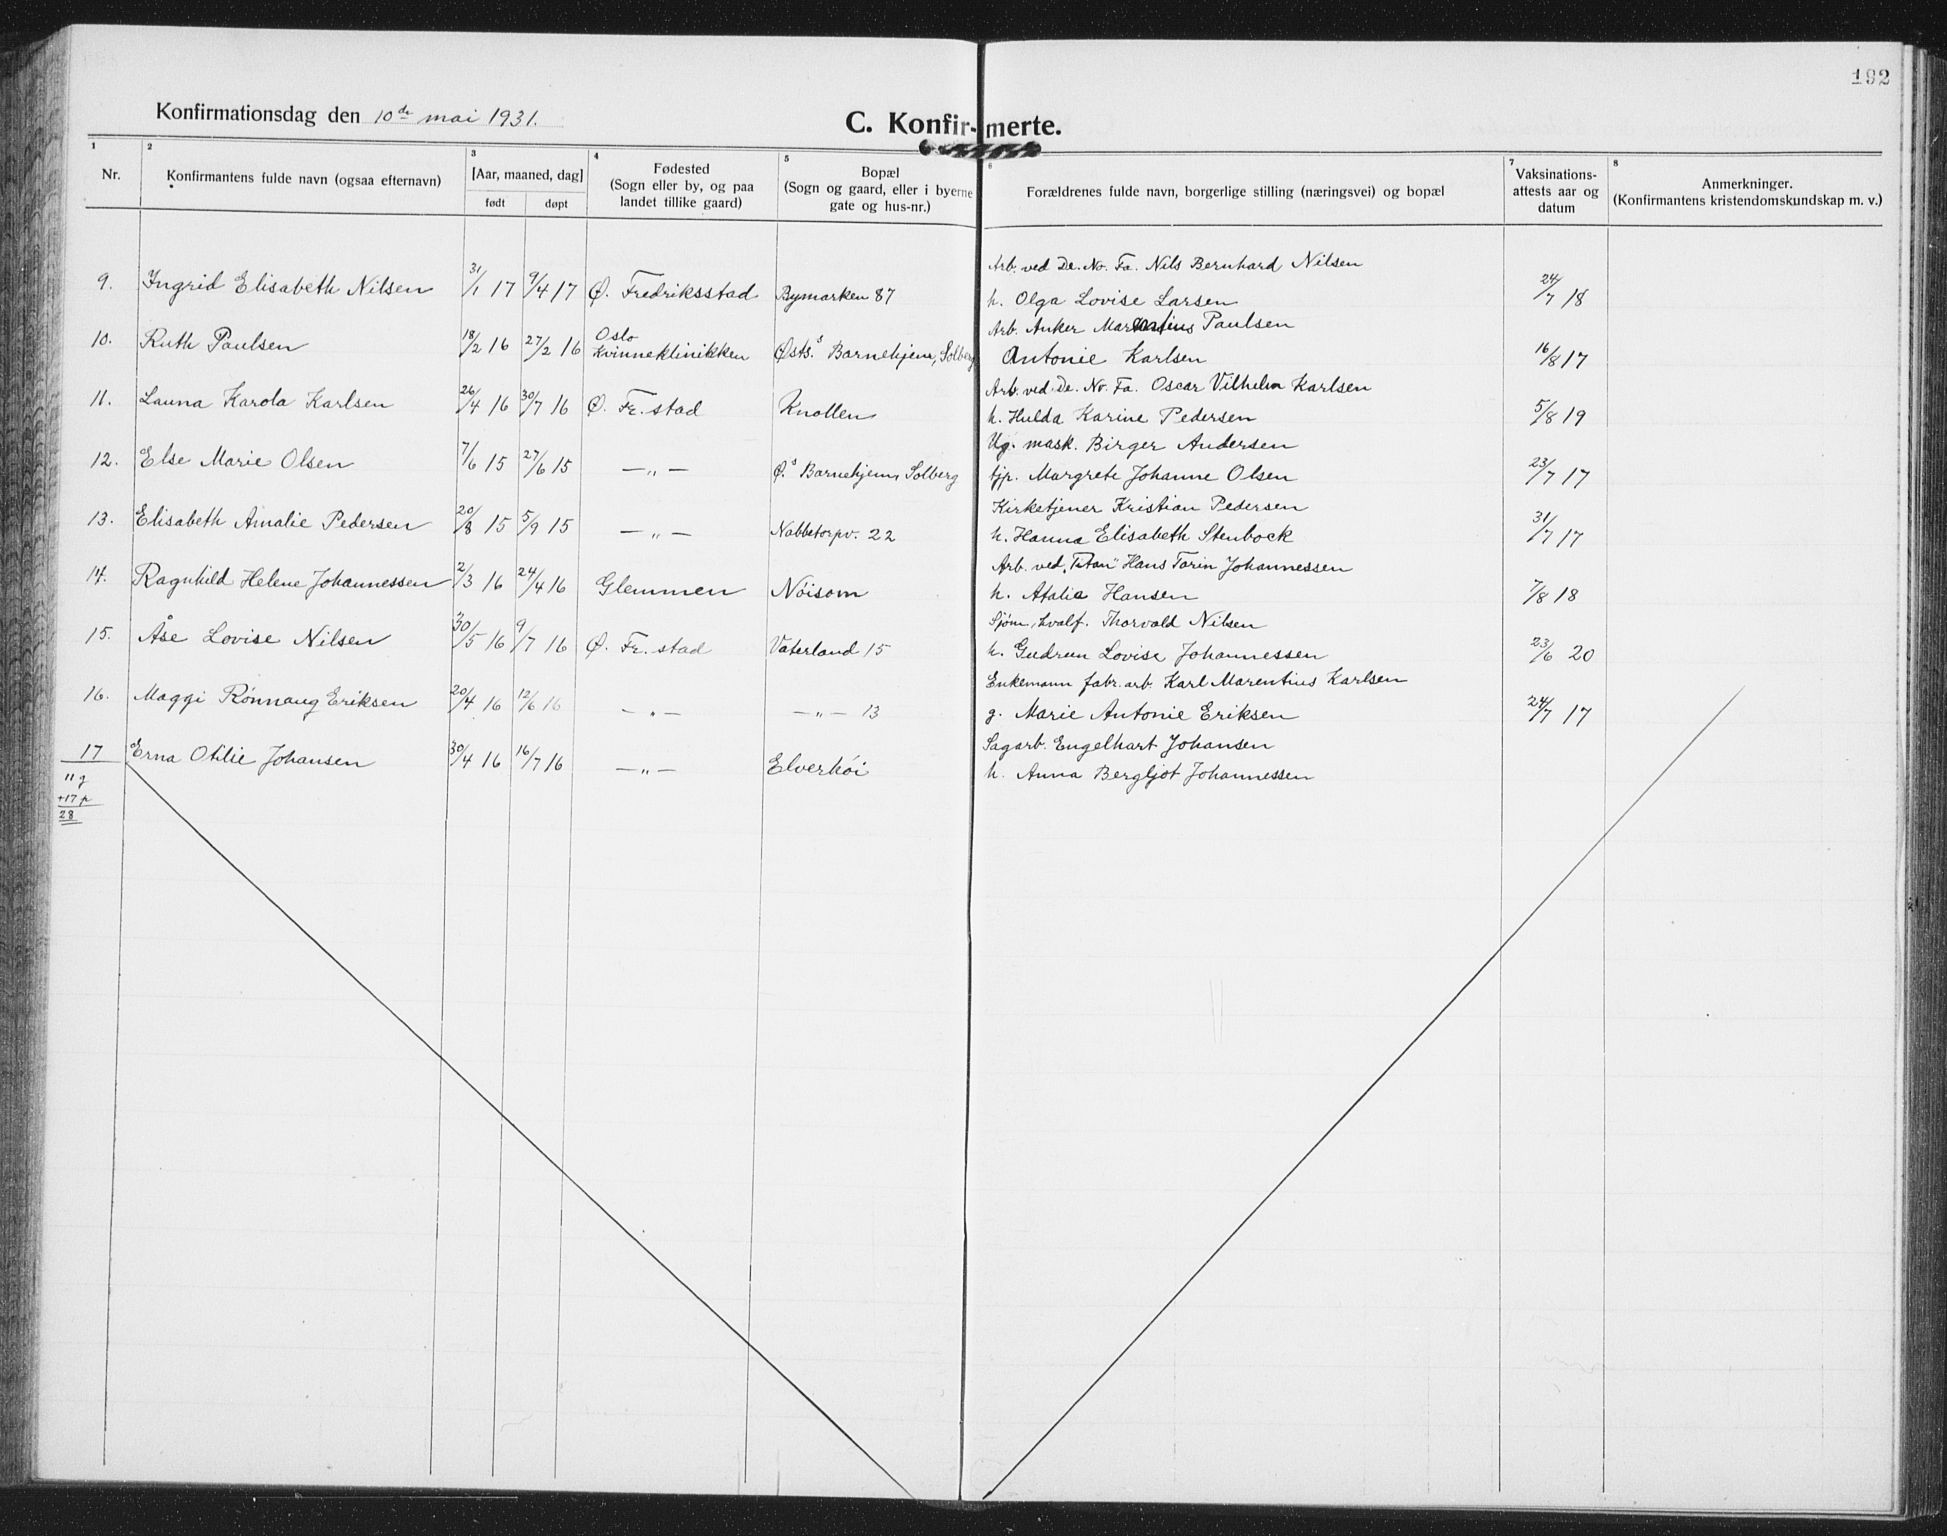 192
Konfirmationsdag den 10de mai 1931.
C. Konfirmerte.
1 2 3 4 5 6 7 8
Nr. Konfirmantens fulde navn (ogsaa efternavn) [Aar, maaned, dag] født døpt Fødested (Sogn eller by, og paa landet tillike gaard) Bopæl (Sogn og gaard, eller i byerne gate og hus-nr.) Forældrenes fulde navn, borgerlige stilling (næringsvei) og bopæl Vaksinations-attests aar og datum Anmerkninger. (Konfirmantens kristendomskundskap m. v.)
Arb. ved De. No. Fa. Nils Bernhard Nilsen
9. Ingrid Elisabeth Nilsen 31/1 17 9/4 17 Ø. Fredriksstad Bymarken 87 h. Olga Lovise Larsen 24/7 18
Arb. Anker Paulsen
10. Ruth Paulsen 18/2 16 27/2 16 Oslo Kvinneklinikken Østs.s Barnehjem, Solberg Antonie Karlsen 16/8 17
Arb. ved De. No. Fa. Oscar Vilhelm Karlsen
11. Launa Karola Karlsen 26/4 16 30/7 16 Ø. Fr. stad Knollen h. Hulda Karine Pedersen 5/8 19
Ug. mask. Birger Andersen
12. Else Marie Olsen 7/6 15 27/6 15 — " — Ø.s Barnehjem, Solberg tjp. Margrete Johanne Olsen 23/7 17
Kirketjener Kristian Pedersen
13. Elisabeth Amalie Pedersen 20/8 15 5/9 15 — " — Nabbetorpv. 22 h. Hanna Elisabeth Stenbock 31/7 17
Arb. ved „Titan" Hans Torin Johannessen
14. Ragnhild Helene Johannessen 2/3 16 24/4 16 Glemmen Nöisom h. Atalia Hansen 7/8 18
Sjöm., hvalf. Thorvald Nilsen
15. Åse Lovise Nilsen 30/5 16 9/7 16 Ø. Fr. stad Vaterland 15 h. Gudrun Lovise Johannessen 23/6 20
Enkemann fabr. arb. Karl Marentius Karlsen
16. Maggi Rønnaug Eriksen 20/4 16 12/6 16 — " — — " — 13 g. Marie Antonie Eriksen 24/7 17
Sagarb. Engelhart Johansen
17 Erna Otilie Johansen 30/4 16 16/7 16 — " — Elverhöi h. Anna Bergljot Johannessen
11 g
+17 p
28